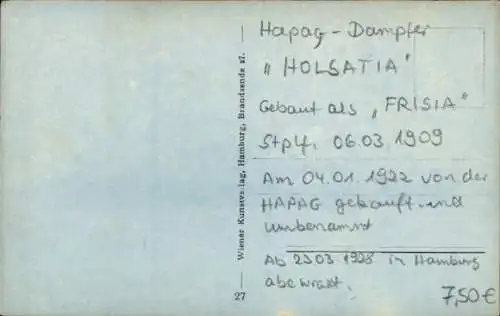 Hapag - Dampfer
„HOLSATIA"
Gebaut als „FRISIA"
Stplf. 06.03.1909
Am 04.01.1922 von der
HAPAG gekauft und
umbenannt
Ab 23.03.1928 in Hamburg
abewrakt.
7,50 €
— Wiener Kunstverlag, Hamburg, Brandsende 27. —
27